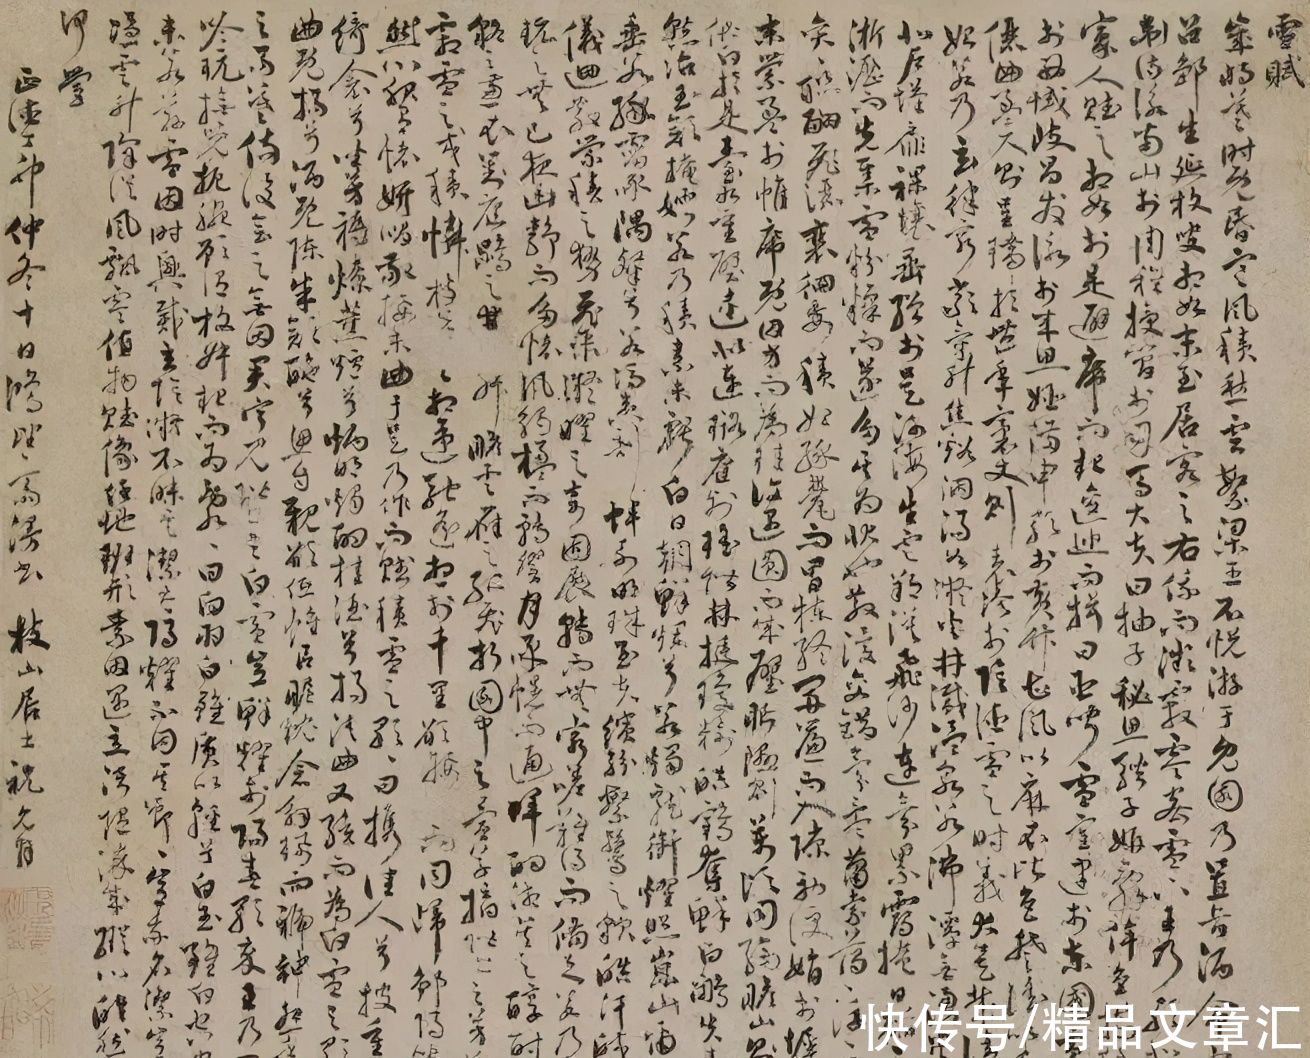 雪賦
歲將暮時既昏寒風積愁雲繁梁王不悅游于兔園乃置旨酒命
召鄒生延枚叟相如末至居客之右俄而微霰零密雪下王乃歌
衛詩詠南山於周雅授簡於司馬大夫曰抽子秘思騁子妍辭侔色
寡人賦之相如於是避席而起逡巡而揖曰臣聞雪宮建於東國
於西域岐昌發詠於來思姬滿申歌於黃竹曹風以麻衣比色楚謠以
儷曲盈尺則呈瑞於豐年袤丈則表沴於陰德雪之時義大矣哉
始若乃玄律窮嚴氣升焦溪涸湯谷凝火井滅溫泉冰沸潭無湧
北户墐扉裸壤垂繒於是河海生雲朔漠飛沙連氛累靄掩日
淅瀝而先集雪粉糅而遂多其為狀也散漫交錯氛氳蕭索藹藹浮
奕奕聯翩飛灑徘徊委積始緣甍而冒棟終開簾而入隙初便娟於墀
末縈盈於帷席既因方而為珪亦遇圓而成璧眄隰則萬頃同縞瞻山則
俱白於是臺如重璧逵似連璐庭列瑤階林挺瓊樹皓鶴奪鮮白鷴失
然冶玉顏掩姱若乃積素未虧白日朝鮮爛兮若燭龍銜耀照崑山爾
垂若緣霤承隅粲兮若馮夷剖蚌列明珠至夫繽紛繁騖之貌皓汗皦
儀迴散縈積之勢飛聚凝曜之奇固展轉而無窮嗟難得而備知若乃
玩之無已夜幽靜而多懷風觸楹而轉響月承幌而通暉酌湘吳之醇酎
貉之兼衣對庭鵾之雙舞瞻雲雁之孤飛折園中之萱草摘階上之芳
霜雪之交積憐枝葉之相違馳遙思於千里願接手而同歸鄒陽聞
懣然心服有懷妍唱敬接末曲于是乃作而賦積雪之歌歌曰攜佳人兮披重
綺衾兮坐芳褥燎薰爐兮炳明燭酌桂酒兮揚清曲又續而為白雪之歌
曲既揚兮酒既陳朱顏酡兮思自親願低帷以昵枕念解珮而褫紳怨
之易暮傷後會之無因君寧見階上之白雪豈鮮耀於陽春歌卒王乃
吟玩撫覽扼腕顧謂枚叔起而為亂亂曰白羽雖白質以輕兮白玉雖白空
未若茲雪因時興滅玄陰凝不昧其潔太陽耀不固其節節豈我名潔豈
憑雲升降從風飄零值物賦像任地班形素因遇立汚隨染成縱心皓然
何營
正德丁卯仲冬十日 齋漫書 枝山居士祝允明
快传号/精品文章汇